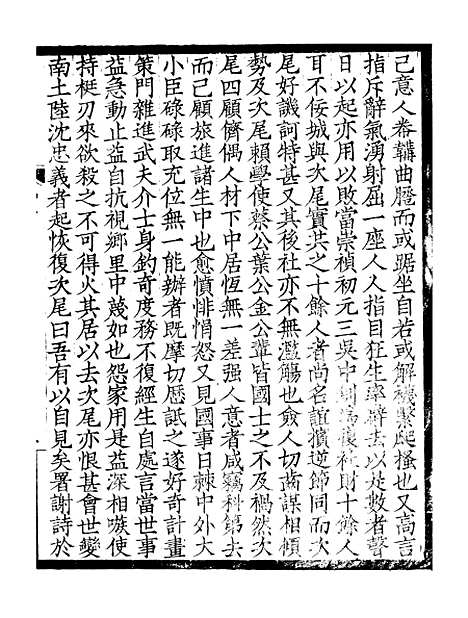 己意人卷韝曲䐈而或踞坐自若或解襪縶爬搔也又高言
指斥辭氣湧射屈一座人人指目狂生率辟去以是數者聲
日以起亦用以敗當崇禎初元三吳中則為復社財十餘人
耳不佞城與次尾實共之十餘人者尚名誼擯逆節同而次
尾好譏訶特甚又其後社亦不無濫觴也僉人切齒謀相傾
勢及次尾賴學使蔡公葉公金公輩皆國士之不及禍然次
尾四顧儕偶人材下中居恆無一差强人意者咸竊科第去
而己顧旅進諸生中也愈憤悱悁怒又見國事日棘中外大
小臣碌碌取充位無一能辦者既摩切歷詆之遂好奇計畫
策門雜進武夫介士身釣奇度務不復經生自處言當世事
益急動止益自抗視鄉里中蔑如也怨家用是益深相嗾使
持梃刃來欲殺之不可得火其居以去次尾亦恨甚會世變
南土陸沈忠義者起恢復次尾曰吾有以自見矣署謝詩於